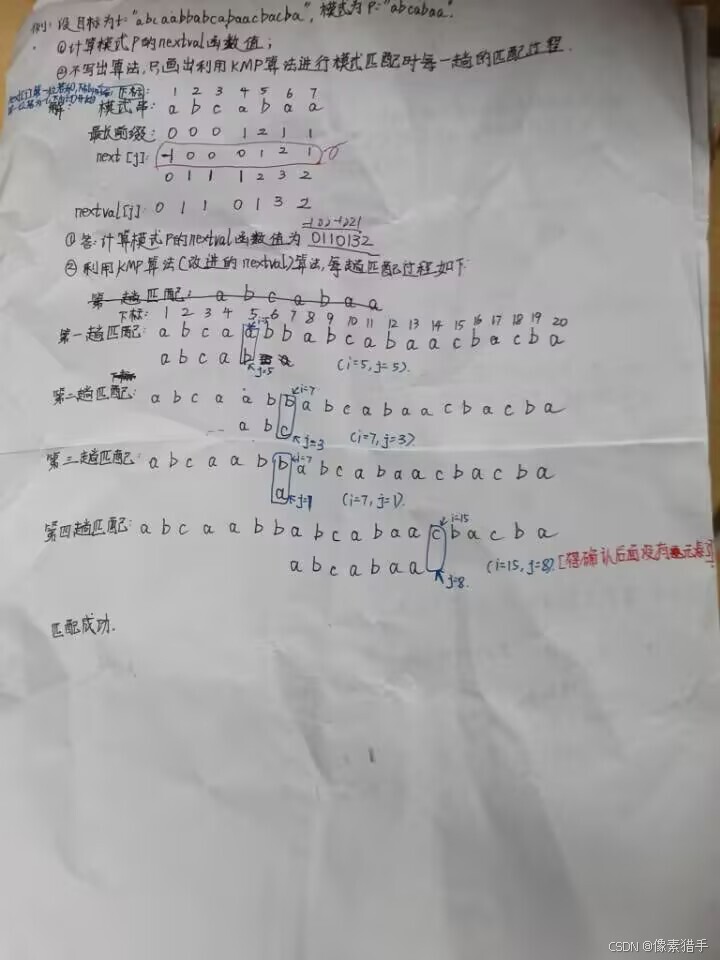 例: 设目标为t="abcaabbabcabaacbacba", 模式为 P="abcabaa".
①计算模式P的nextval函数值;
②不写出算法,只画出利用KMP算法进行模式匹配时每一趟的匹配过程.
下标: 1 2 3 4 5 6 7
解: 模式串: a b c a b a a
最长前缀: 0 0 0 1 2 1 1
next[j]: -1 0 0 0 1 2 1
0 1 1 1 2 3 2
nextval[j]: 0 1 1 0 1 3 2
①答: 计算模式P的nextval函数值为 0110132
②利用KMP算法(改进的nextval)算法,每趟匹配过程如下:
第一趟匹配: a b c a b a a
下标: 1 2 3 4 5 6 7 8 9 10 11 12 13 14 15 16 17 18 19 20
i=5
第一趟匹配: a b c a a b b a b c a b a a c b a c b a
a b c a b a
j=5
(i=5, j=5).
i=7
第二趟匹配: a b c a a b b a b c a b a a c b a c b a
a b c
j=3
(i=7, j=3).
i=7
第三趟匹配: a b c a a b b a b c a b a a c b a c b a
a
j=1
(i=7, j=1).
i=15
第四趟匹配: a b c a a b b a b c a b a a c b a c b a
a b c a b a a
j=8.
(i=15, j=8).
[得确认后面没有元素]
匹配成功.
CSDN @像素猎手